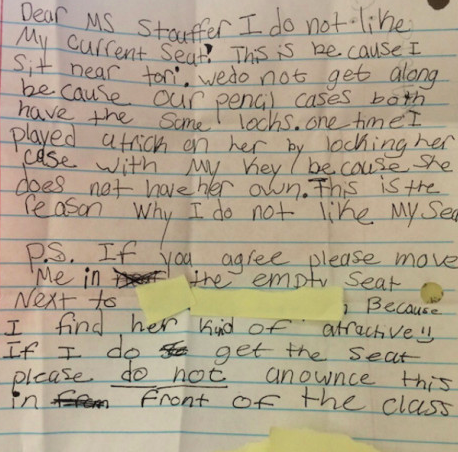 Dear MS Stouffer I do not like
My current Seat! This is be cause I
Sit near tori. wedo not get along
be cause our pencil cases both
have the same locks. one time I
played atrick on her by locking her
case with My Key be cause she
does not have her own. This is the
reason why I do not like My Sea
P.S. If you agree please move
Me in the empty Seat
Next to , Because
I find her kind of atractive!!
If I do get the seat
please do not anownce this
in front of the class